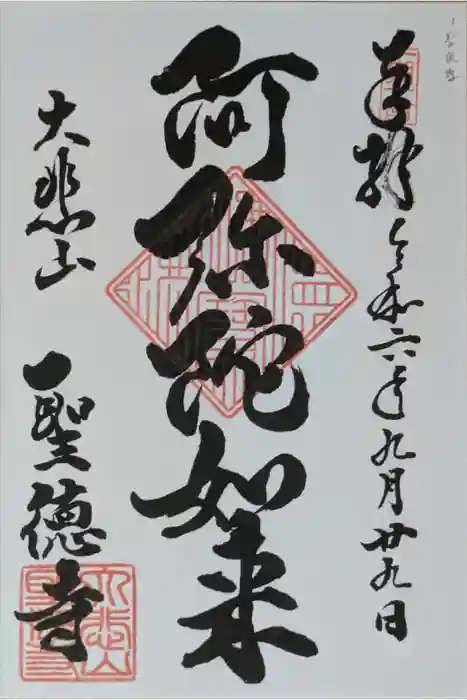 奉拝
令和六年九月廿九日
阿弥陀如来
大悲山
聖徳寺